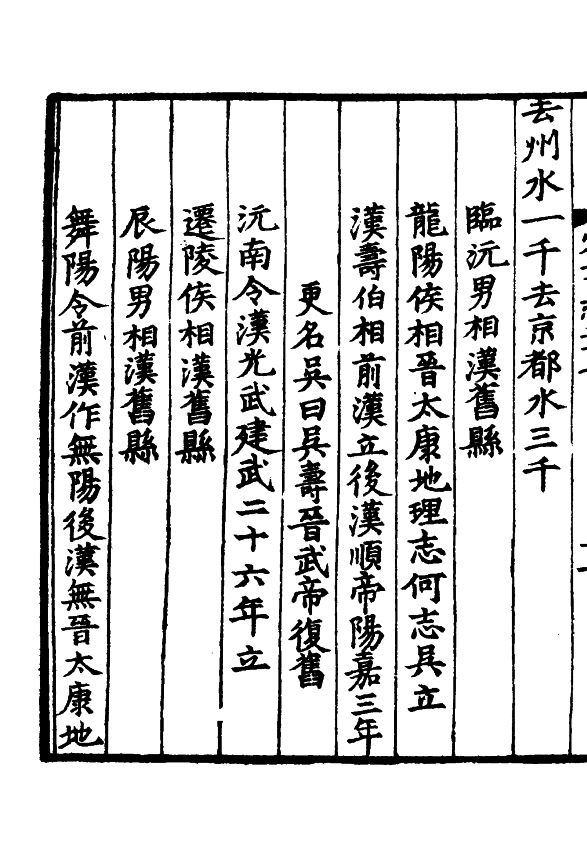 去州水一千去京都水三千
臨沅男相漢舊縣
龍陽侯相晉太康地理志何志吳立
漢壽伯相前漢立後漢順帝陽嘉三年
更名吳曰吳壽晉武帝復舊
沅南令漢光武建武二十六年立
遷陵侯相漢舊縣
辰陽男相漢舊縣
舞陽令前漢作無陽後漢無晉太康地